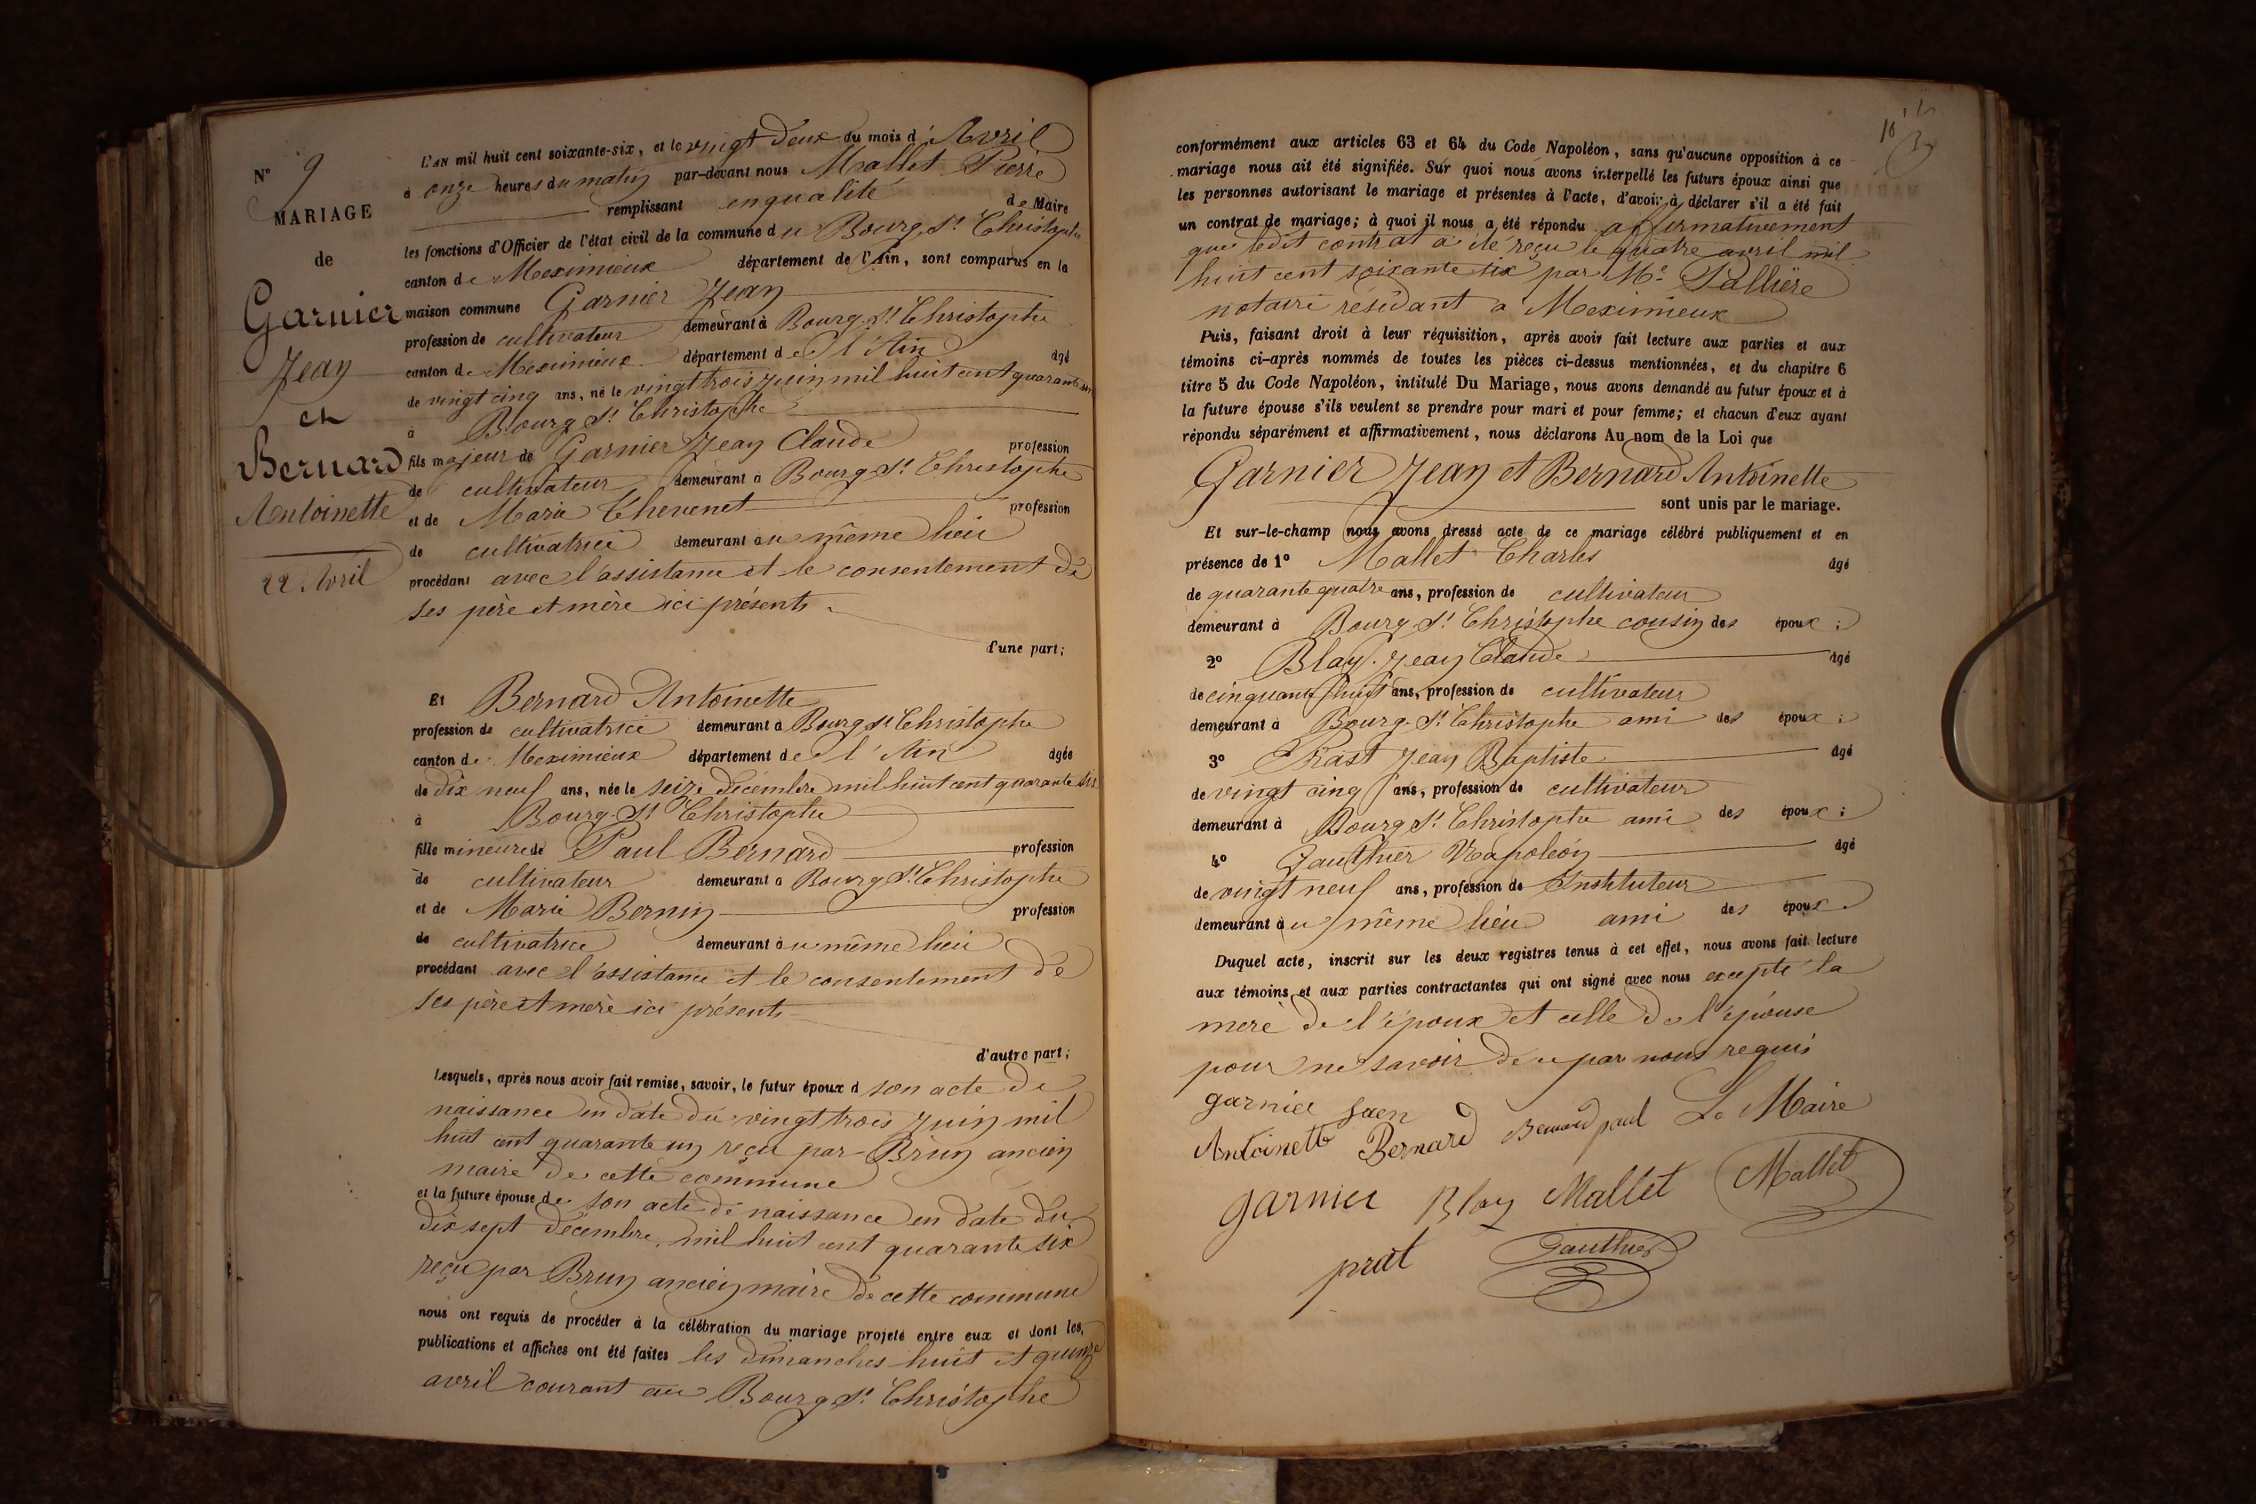 N° 9
MARIAGE
de
Garnier
Jean
et
Bernard
Antoinette
22 Avril
L'AN mil huit cent soixante-six, et le vingt deux du mois d'Avril
à onze heures du matin par-devant nous Mallet Pierre
remplissant en qualité de Maire
les fonctions d'Officier de l'état civil de la commune du Bourg St Christophe
canton de Meximieux département de l'Ain, sont comparus en la
maison commune Garnier Jean
profession de cultivateur demeurant à Bourg St Christophe
canton de Meximieux département de l'Ain âgé
de vingt cinq ans, né le vingt trois juin mil huit cent quarante un
à Bourg St Christophe
fils majeur de Garnier Jean Claude profession
de cultivateur demeurant à Bourg St Christophe
et de Marie Thevenet profession
de cultivatrice demeurant au même lieu
procédant avec l'assistance et le consentement de
ses père et mère ici présents
d'une part;
Et Bernard Antoinette
profession de cultivatrice demeurant à Bourg St Christophe
canton de Meximieux département de l'Ain âgée
de dix neuf ans, née le seize décembre mil huit cent quarante six
à Bourg St Christophe
fille mineure de Paul Bernard profession
de cultivateur demeurant à Bourg St Christophe
et de Marie Bernin profession
de cultivatrice demeurant au même lieu
procédant avec l'assistance et le consentement de
ses père et mère ici présents
d'autre part;
Lesquels, après nous avoir fait remise, savoir, le futur époux d son acte de
naissance en date du vingt trois juin mil
huit cent quarante un reçu par Brun ancien
maire de cette commune
et la future épouse de son acte de naissance en date du
dix sept décembre mil huit cent quarante six
reçu par Brun ancien maire de cette commune
nous ont requis de procéder à la célébration du mariage projeté entre eux et dont les
publications et affiches ont été faites les dimanches huit et quinze
avril courant au Bourg St Christophe
conformément aux articles 63 et 64 du Code Napoléon, sans qu'aucune opposition à ce
mariage nous ait été signifiée. Sur quoi nous avons interpellé les futurs époux ainsi que
les personnes autorisant le mariage et présentes à l'acte, d'avoir à déclarer s'il a été fait
un contrat de mariage; à quoi il nous a été répondu affirmativement
que ledit contrat a été reçu le quatre avril mil
huit cent soixante six par Me Pallière
notaire résidant à Meximieux
Puis, faisant droit à leur réquisition, après avoir fait lecture aux parties et aux
témoins ci-après nommés de toutes les pièces ci-dessus mentionnées, et du chapitre 6
titre 5 du Code Napoléon, intitulé Du Mariage, nous avons demandé au futur époux et à
la future épouse s'ils veulent se prendre pour mari et pour femme; et chacun d'eux ayant
répondu séparément et affirmativement, nous déclarons Au nom de la Loi que
Garnier Jean et Bernard Antoinette
sont unis par le mariage.
Et sur-le-champ nous avons dressé acte de ce mariage célébré publiquement et en
présence de 1° Mallet Charles âgé
de quarante quatre ans, profession de cultivateur
demeurant à Bourg St Christophe cousin des époux;
2° Blay Jean Claude âgé
de cinquante huit ans, profession de cultivateur
demeurant à Bourg St Christophe ami des époux;
3° Prast Jean Baptiste âgé
de vingt cinq ans, profession de cultivateur
demeurant à Bourg St Christophe ami des époux;
4° Gauthier Napoléon âgé
de vingt neuf ans, profession de Instituteur
demeurant au même lieu ami des époux
Duquel acte, inscrit sur les deux registres tenus à cet effet, nous avons fait lecture
aux témoins et aux parties contractantes qui ont signé avec nous excepté la
mère de l'époux et celle de l'épouse
pour ne savoir de ce par nous requis
garnier Jaen
Antoinette Bernard Bernard paul Le Maire
garnier Blay Mallet Mallet
prat Gauthier